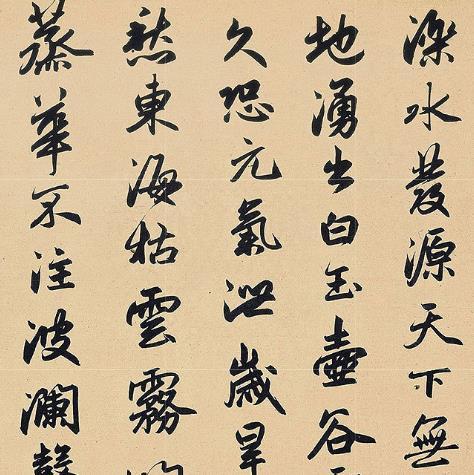 濼水發源天下無
地湧出白玉壺谷
久恐元氣泄歲旱
愁東海枯雲霧
蒸華不注波瀾聲